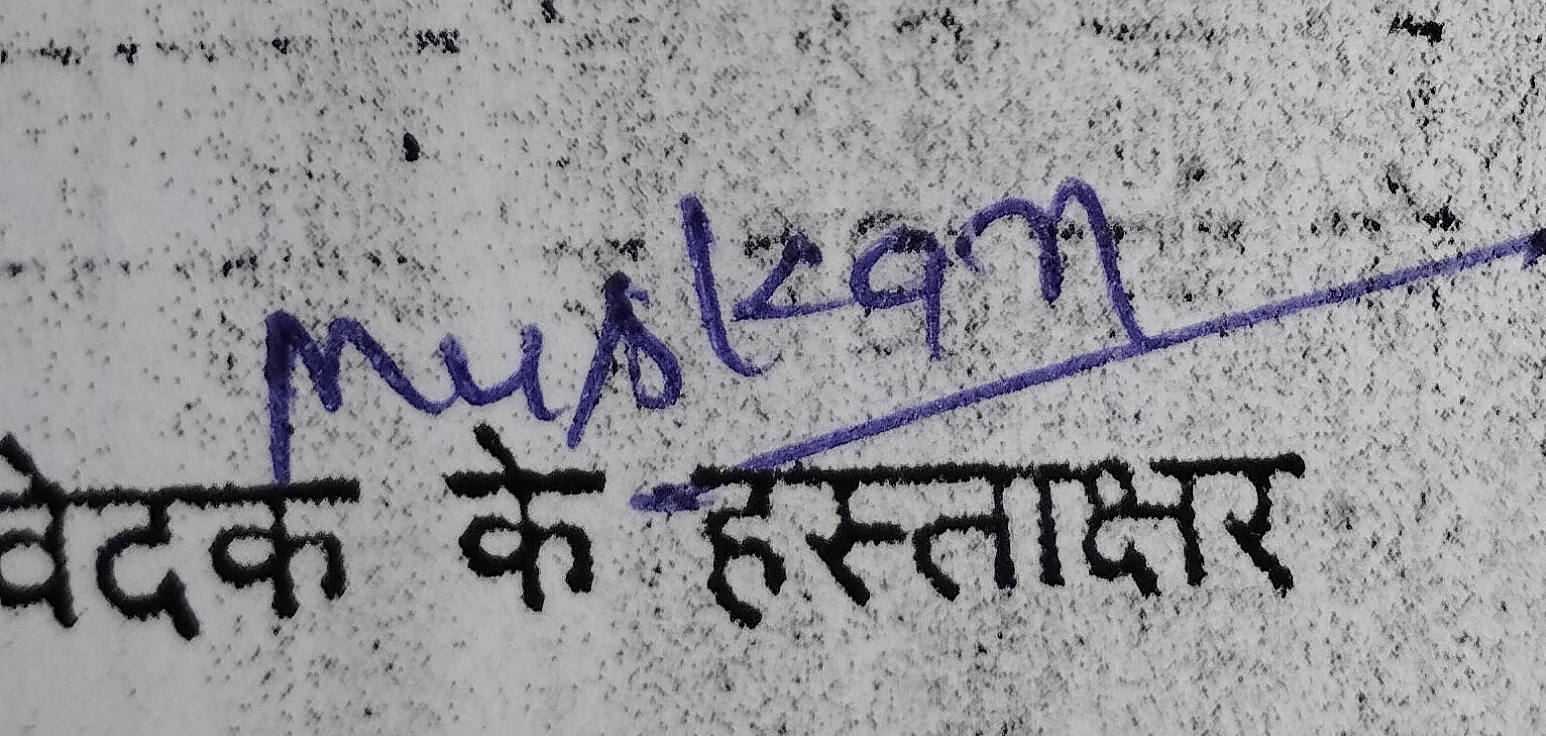 Muskan
वेदक के हस्ताक्षर